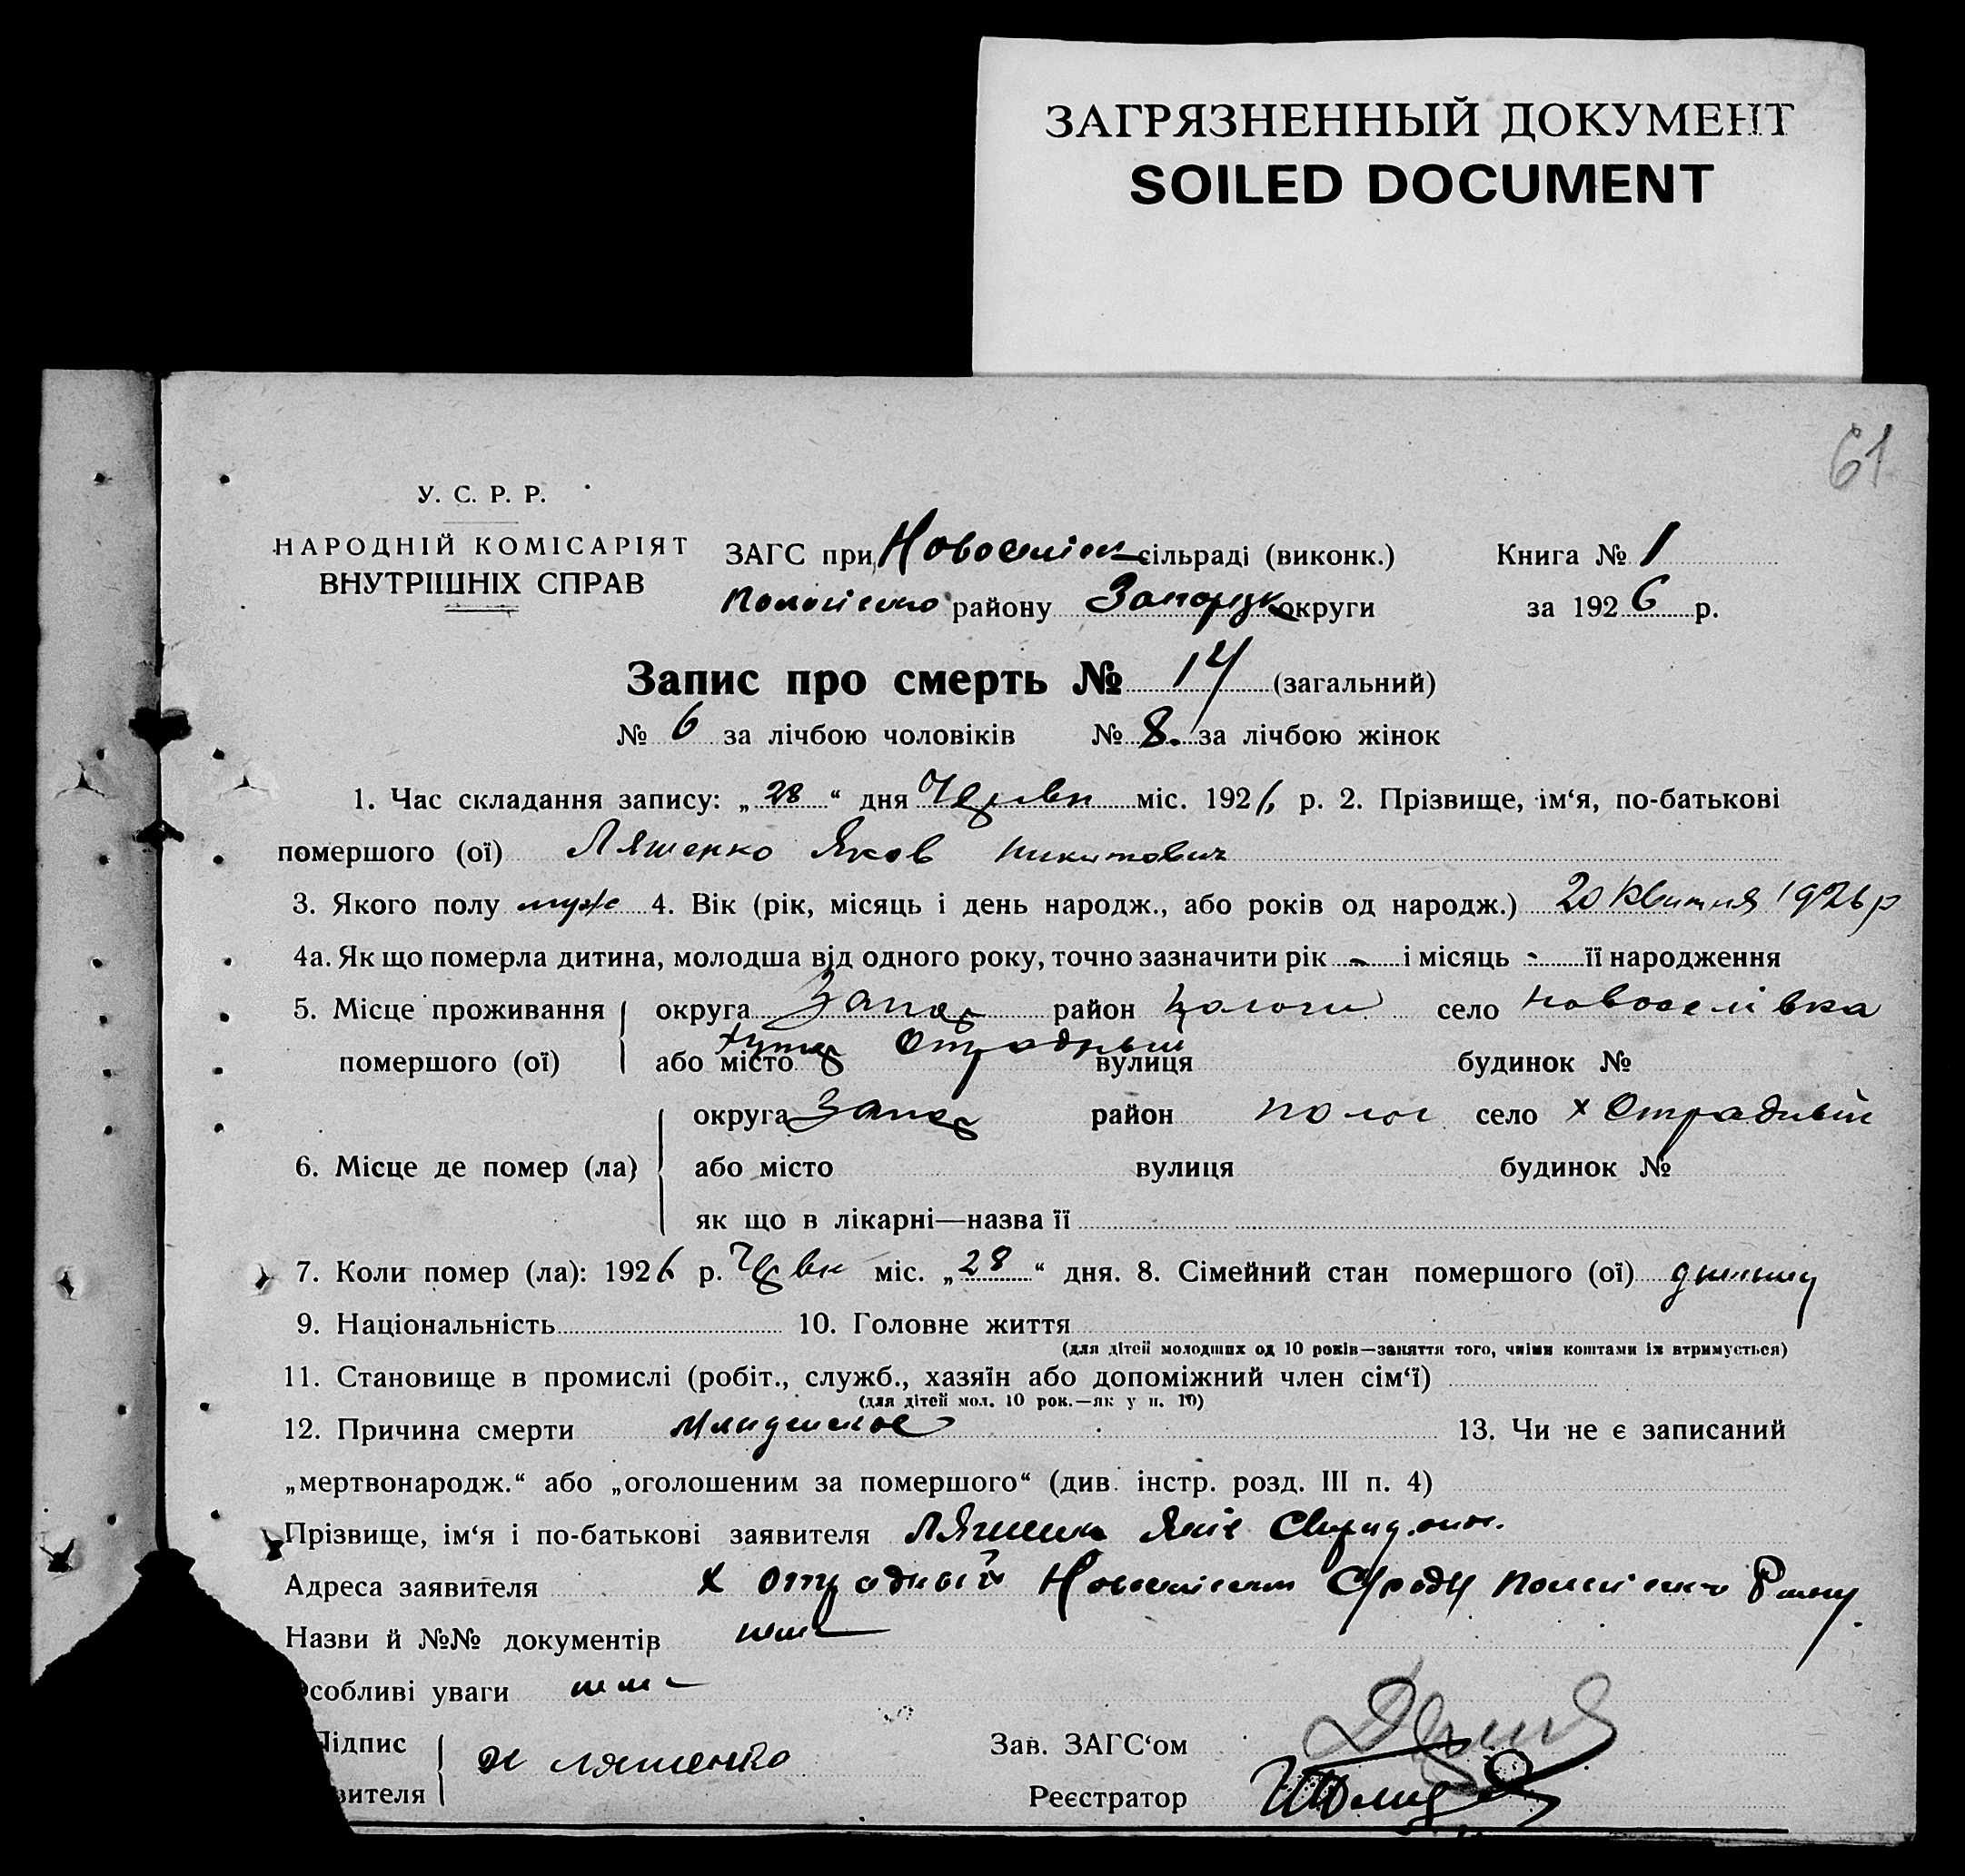 ЗАГРЯЗНЕННЫЙ ДОКУМЕНТ
SOILED DOCUMENT
61
У. С. Р. Р.
НАРОДНІЙ КОМІСАРІЯТ
ВНУТРІШНІХ СПРАВ
ЗАГС при Новоселівск сільраді (виконк.) Книга № 1
району Запорізьк округи за 1926 р.
Запис про смерть № 14 (загальний)
№ 6 за лічбою чоловіків № 8. за лічбою жінок
1. Час складання запису: „28“ дня Червн міс. 1926 р. 2. Прізвище, ім‘я, по-батькові
помершого (ої) Ляшенко Яков Никитович
3. Якого полу муж 4. Вік (рік, місяць і день народж., або років од народж.) 20 Квитня 1926 р
4а. Як що померла дитина, молодша від одного року, точно зазначити рік - і місяць - її народження
5. Місце проживання округа Запор район Пологи село Новоселівка
помершого (ої) або місто хутор Отрадный вулиця будинок №
округа Запор район полог село х Отрадный
6. Місце де помер (ла) або місто вулиця будинок №
як що в лікарні—назва її
7. Коли помер (ла): 1926 р. Червн міс. „28“ дня. 8. Сімейний стан помершого (ої)
9. Національність 10. Головне життя
(для дітей молодших од 10 років—заняття того, чиїми коштами їх втримується)
11. Становище в промислі (робіт., служб., хазяїн або допоміжний член сім‘ї)
(для дітей мол. 10 рок.—як у п. 10)
12. Причина смерти 13. Чи не є записаний
„мертвонародж.“ або „оголошеним за помершого“ (див. інстр. розд. III п. 4)
Прізвище, ім‘я і по-батькові заявителя Ляшенко Яків
Адреса заявителя х Отрадный
Назви й №№ документів
Особливі уваги
Підпис
явителя Ляшенко
Зав. ЗАГС‘ом
Реєстратор